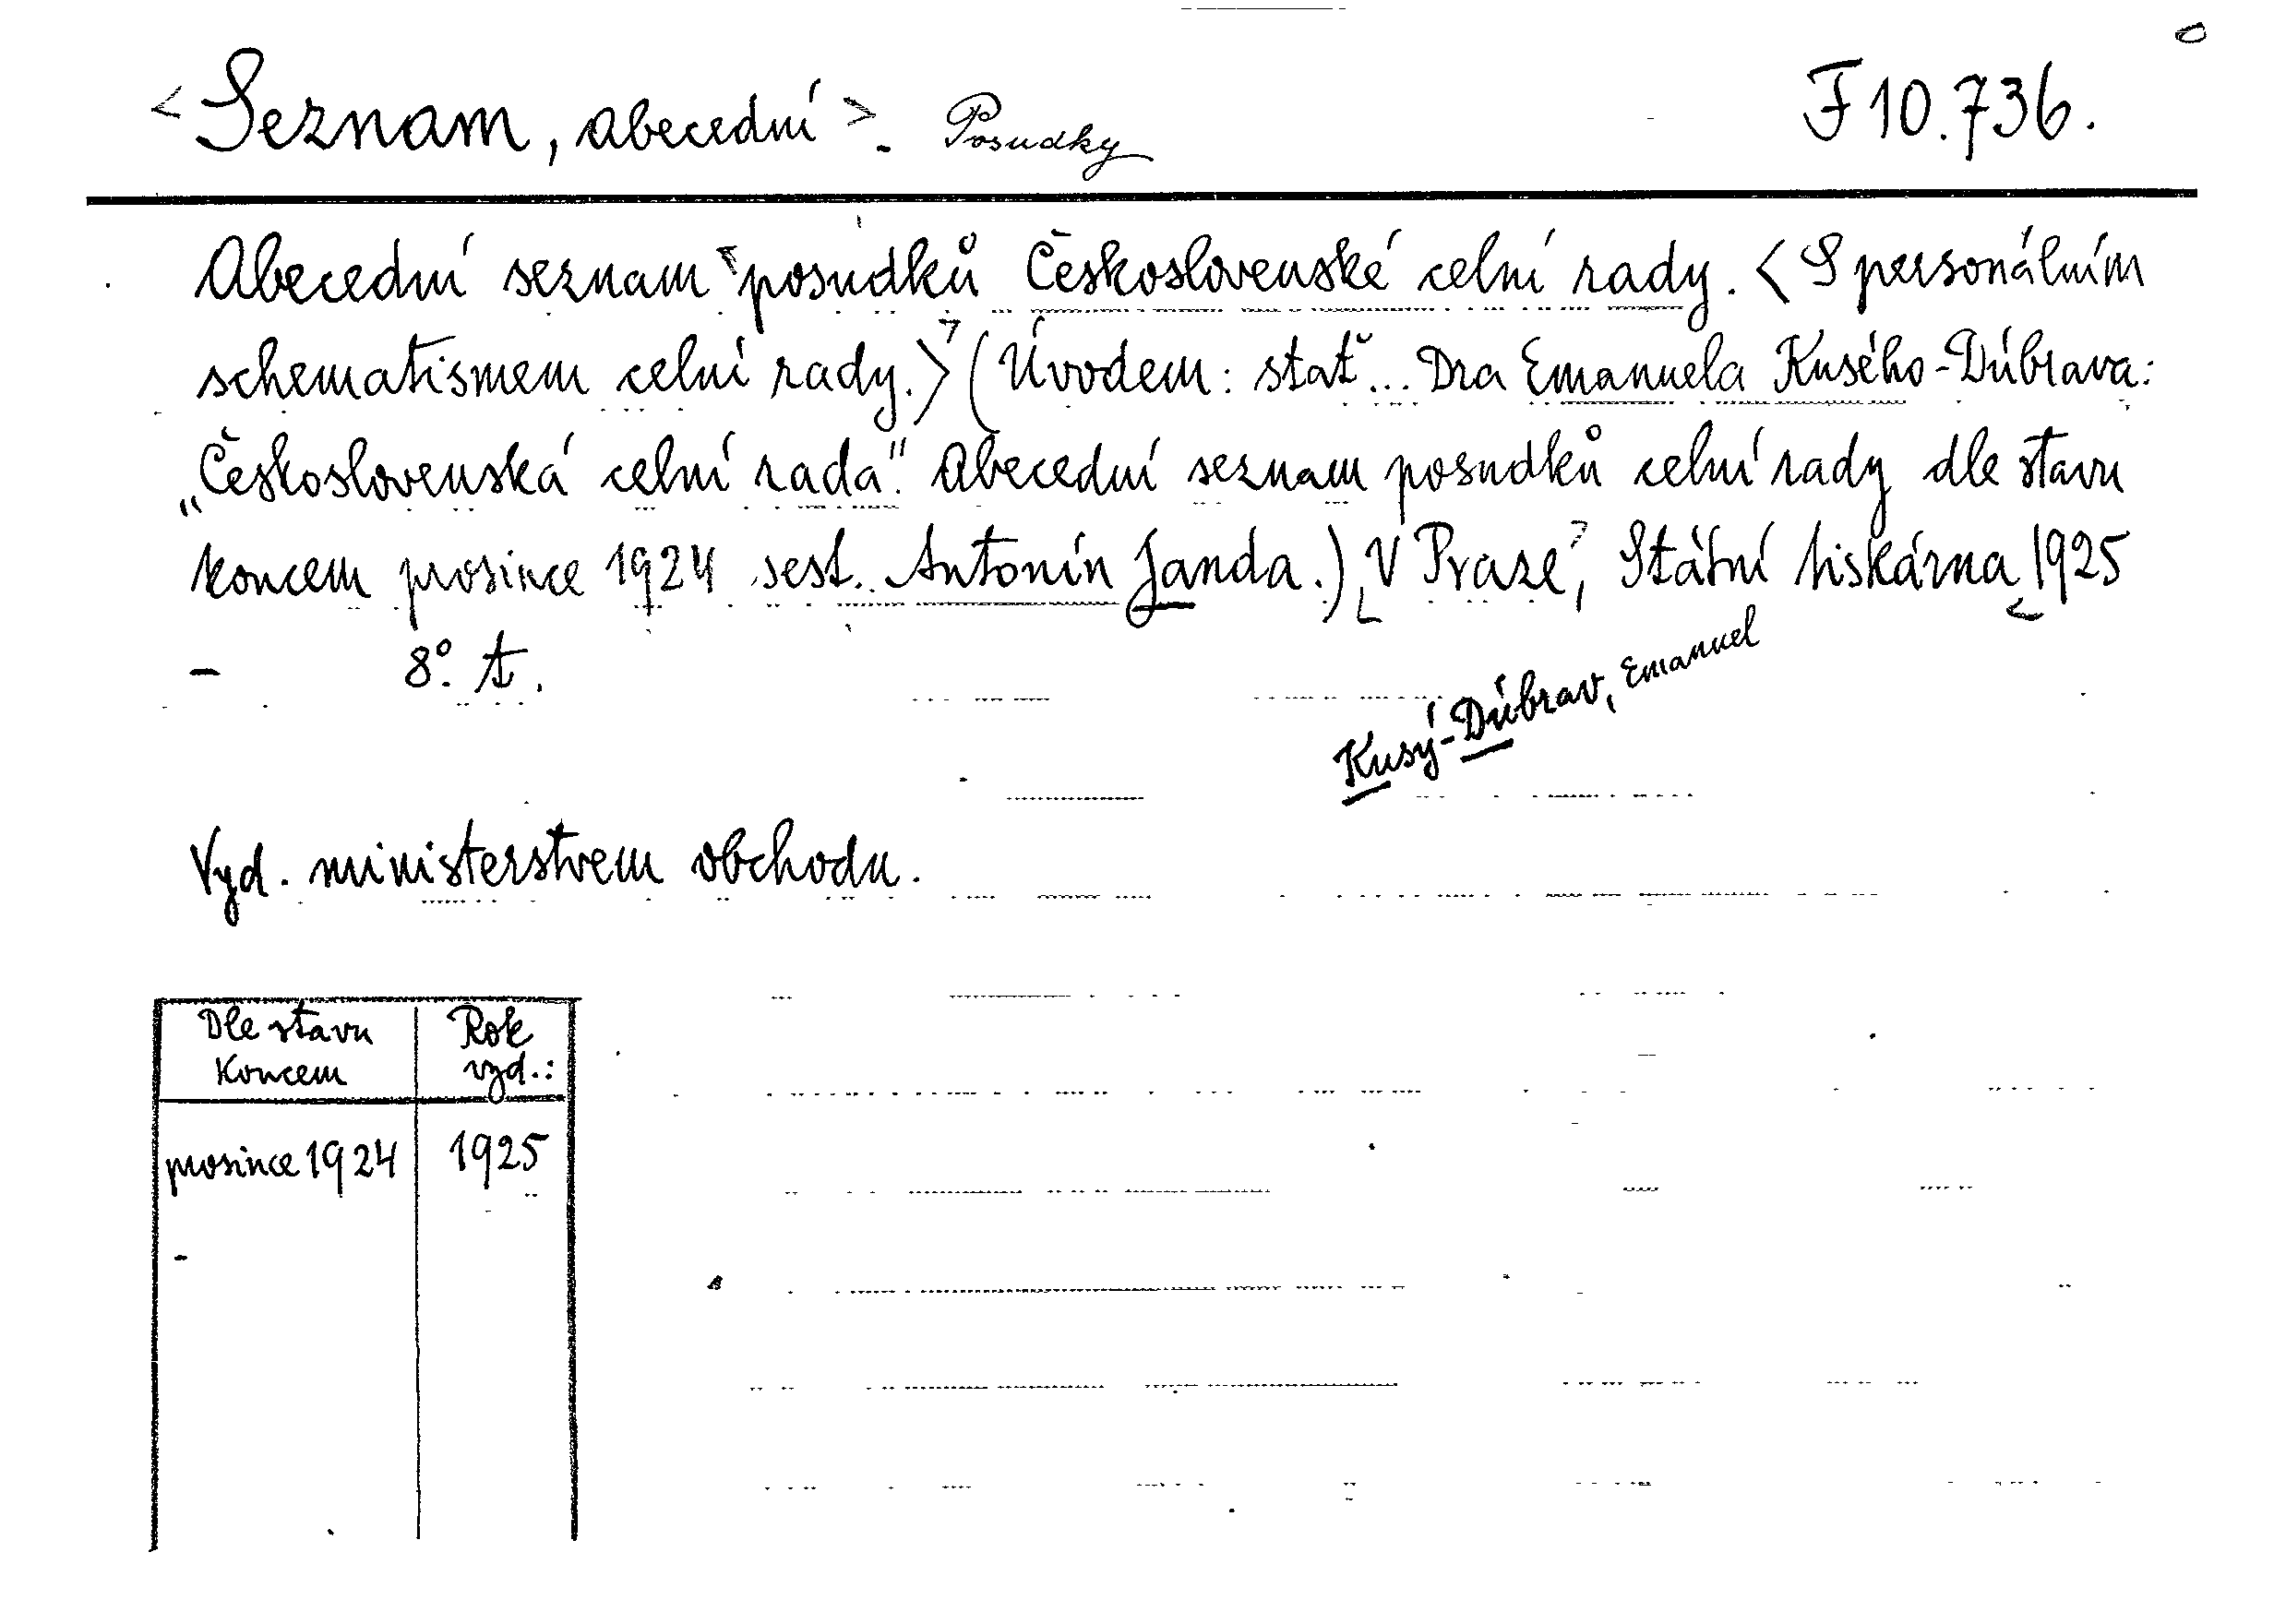 <Seznam, abecední>. Posudky F 10.736.
Abecední seznam posudků Československé celní rady. <S personálním
schematismem celní rady.> (Úvodem: stať... Dra Emanuela Kusého-Dúbrava:
„Československá celní rada". Abecední seznam posudků celní rady dle stavu
koncem prosince 1924 sest. Antonín Janda.) V Praze, Státní tiskárna 1925
- 8°. A.
Kusý-Dúbrav, Emanuel
Vyd. ministerstvem obchodu.
Dle stavu koncem Rok vyd.:
prosince 1924 1925
-